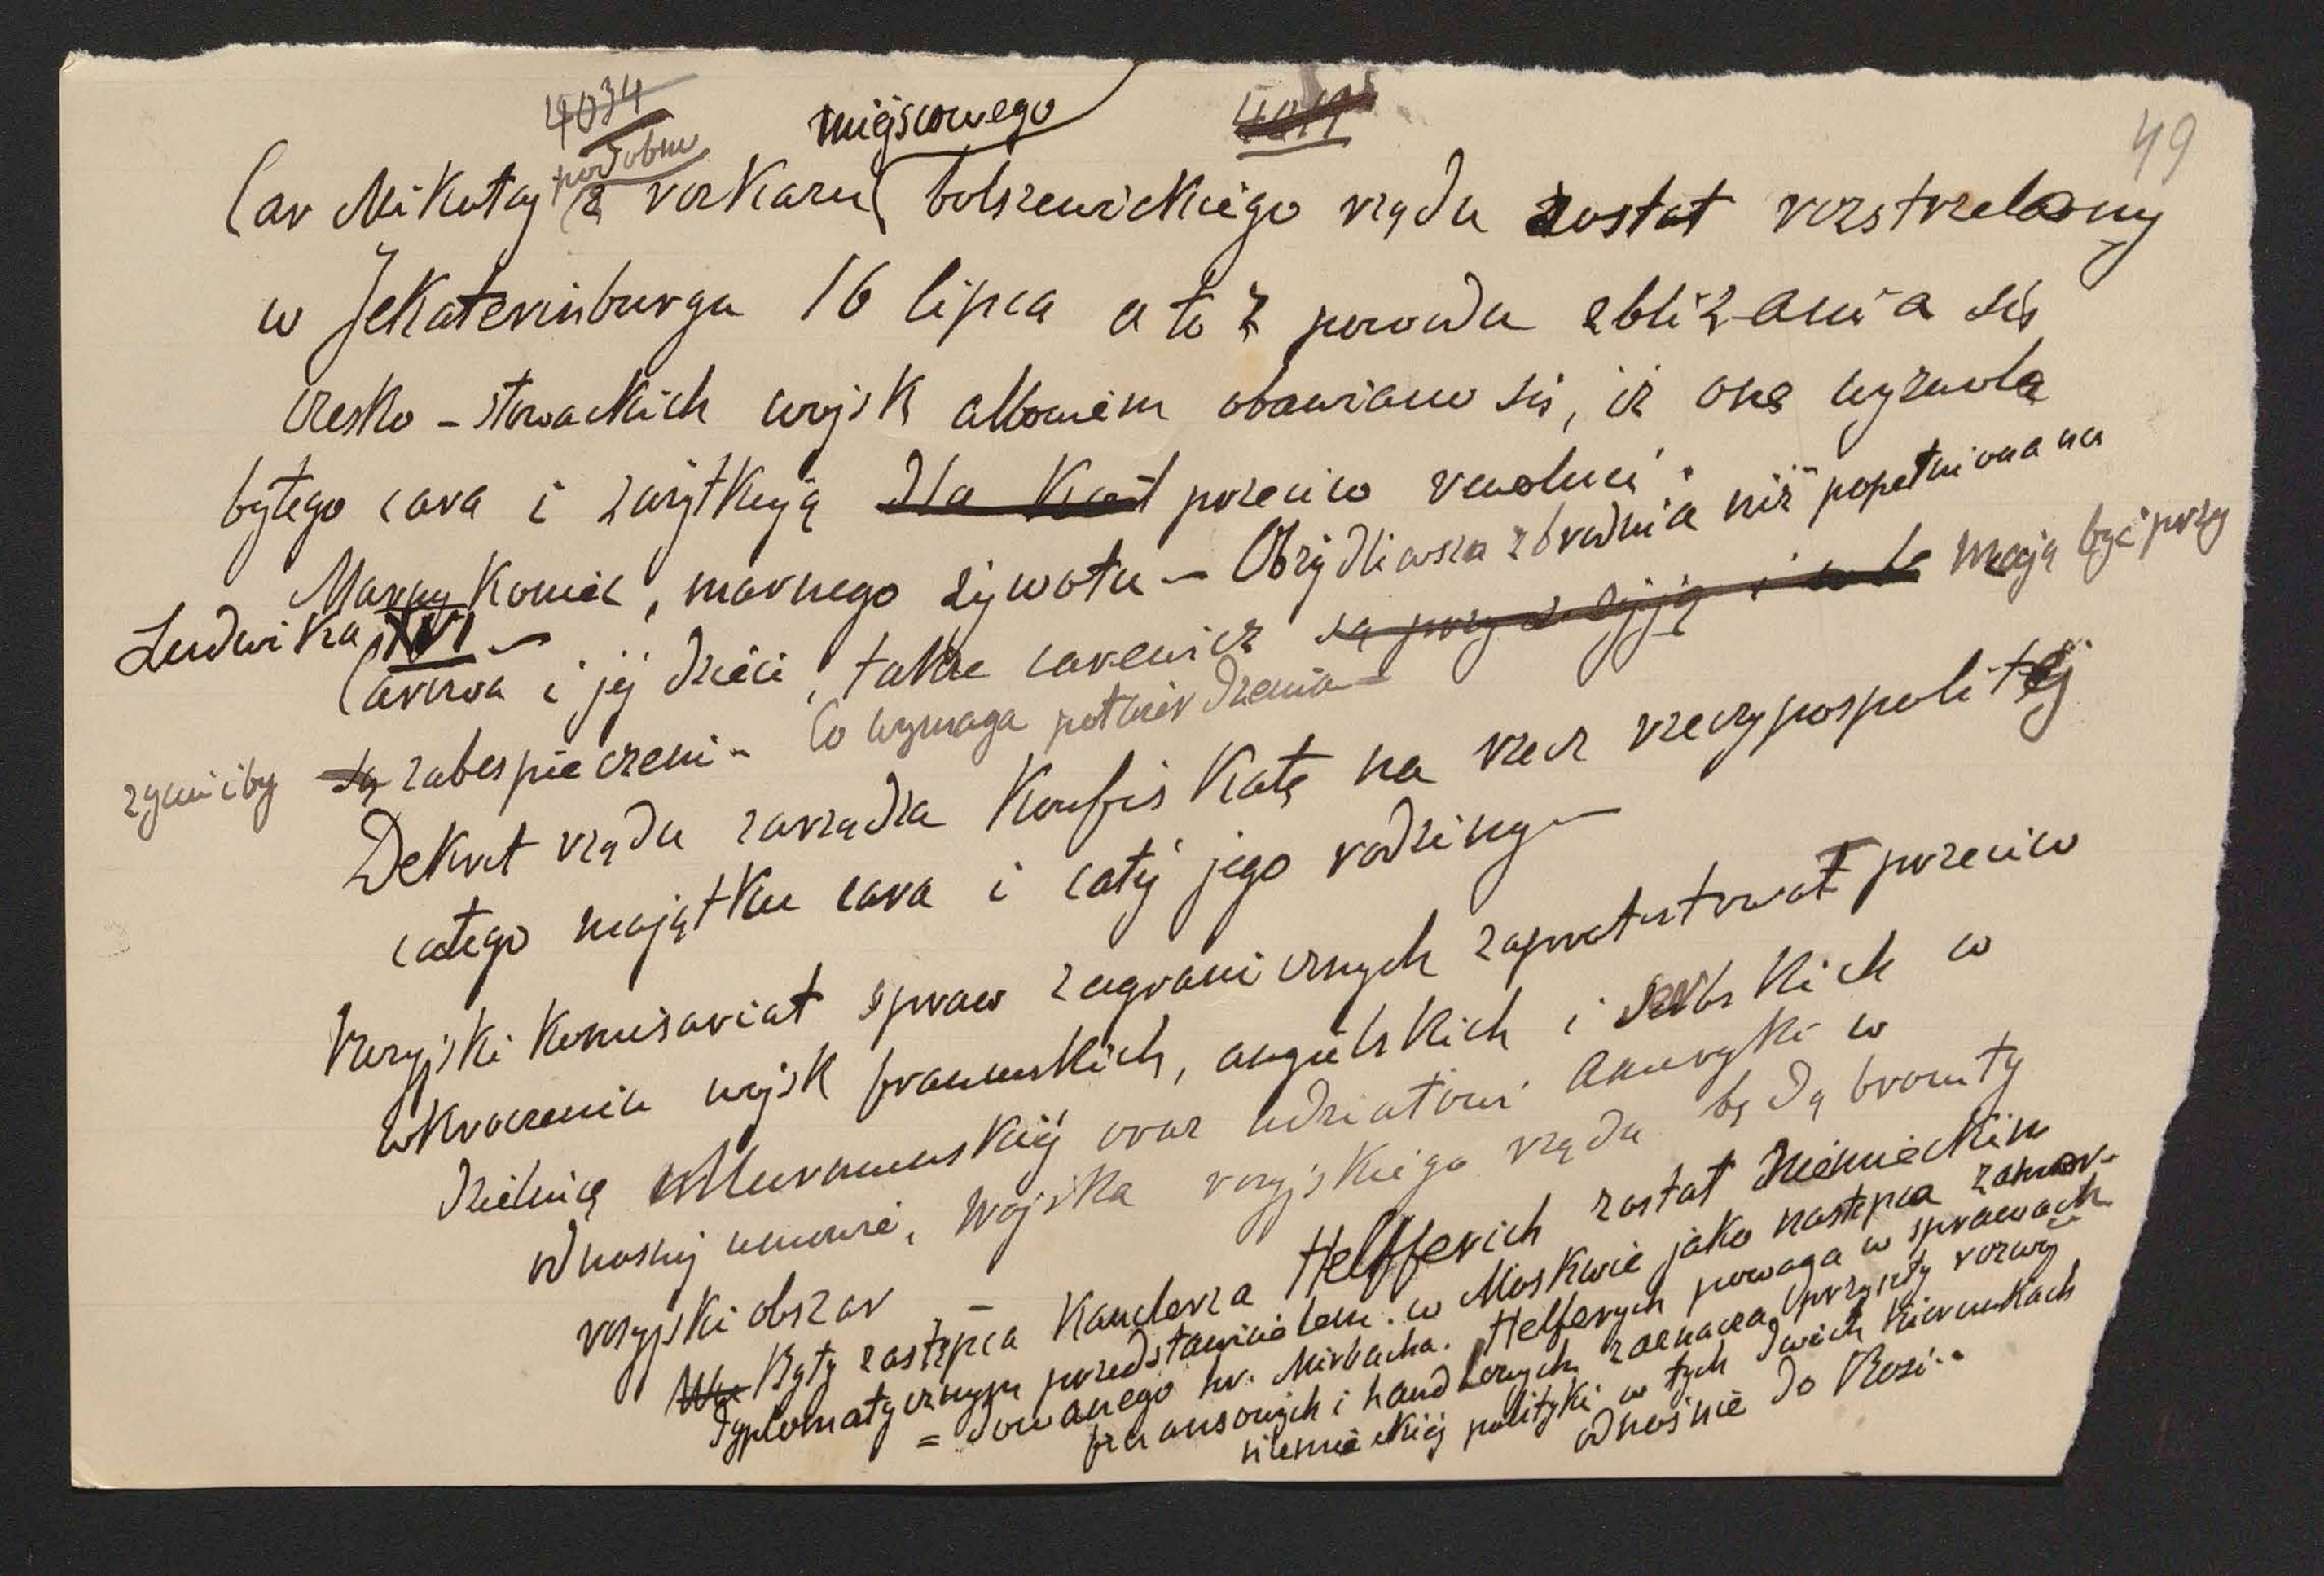 4034
miejscowego
49
podobno
Car Mikołaj z rozkazu bolszewickiego rządu został rozstrzelany
w Jekaterinburgu 16 lipca a to z powodu zbliżania się
czesko-słowackich wojsk albowiem obawiano się, iż one wyzwolą
byłego cara i zużytkują przeciw rewoluci.
Marny koniec, marnego żywota – Obrzydliwsza zbrodnia niż popełniona na
Ludwika XVI –
Carowa i jej dzieci, także carewicz są przy życiu mają być przy
życiu i by są zabespieczeni – Co wymaga potwierdzenia –
Dekret rządu zarządza konfiskatę na rzecz rzeczypospolitej
całego majątku cara i całej jego rodziny –
Rosyjski komisariat spraw zagranicznych zaprotestował przeciw
wkroczeniu wojsk francuskich, angielskich i serbskich w
dzielnicę Murmanskiej oraz udziałowi Ameryki w
odnosnej umowie, wojska rosyjskiego rządu będą broniły
rosyjski obszar –
Były zastępca kanclerza Helfferich został niemieckim
dyplomatycznym przedstawicielem w Moskwie jako następca zamor-
= dowanego hr. Mirbacha. Helferych powaga w sprawach
finansowych i handlowych zaznacza przyszły rozwój
niemieckiej polityki w tych dwóch kierunkach
odnośnie do Rosi..